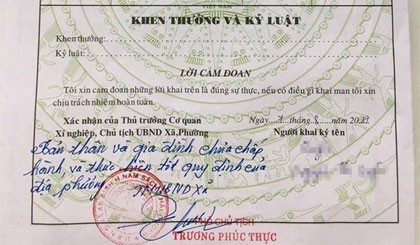 VIỆT NAM
KHEN THƯỞNG VÀ KỶ LUẬT
Khen thưởng:
Kỷ luật:
LỜI CAM ĐOAN
Tôi xin cam đoan những lời khai trên là đúng sự thực, nếu có điều gì khai man tôi xin
chịu trách nhiệm hoàn toàn.
Xác nhận của Thủ trưởng Cơ quan
Xí nghiệp, Chủ tịch UBND Xã, Phường
Ngày tháng 8 năm
Người khai ký tên
Bản thân và gia đình chưa chấp
hành, và thực hiện tốt quy định của
địa phương
TM UBND Xã
PHÓ CHỦ TỊCH
TRƯƠNG PHÚC THỰC